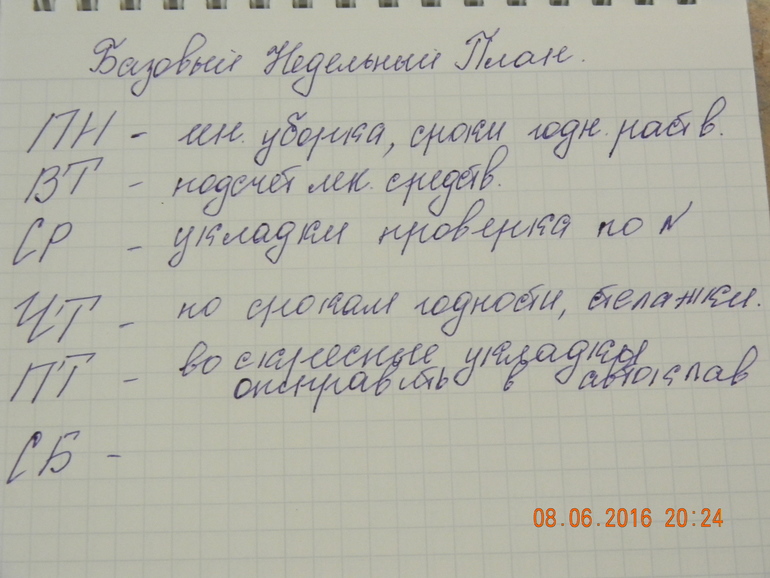 Базовый Недельный План.
ПН - ген. уборка, сроки годн. раств.
ВТ - подсчёт лек. средств.
СР - укладки проверка по N
ЧТ - по срокам годности, стелажи.
ПТ - воскресные укладки
отправить в автоклав
СБ -
08.06.2016 20:24